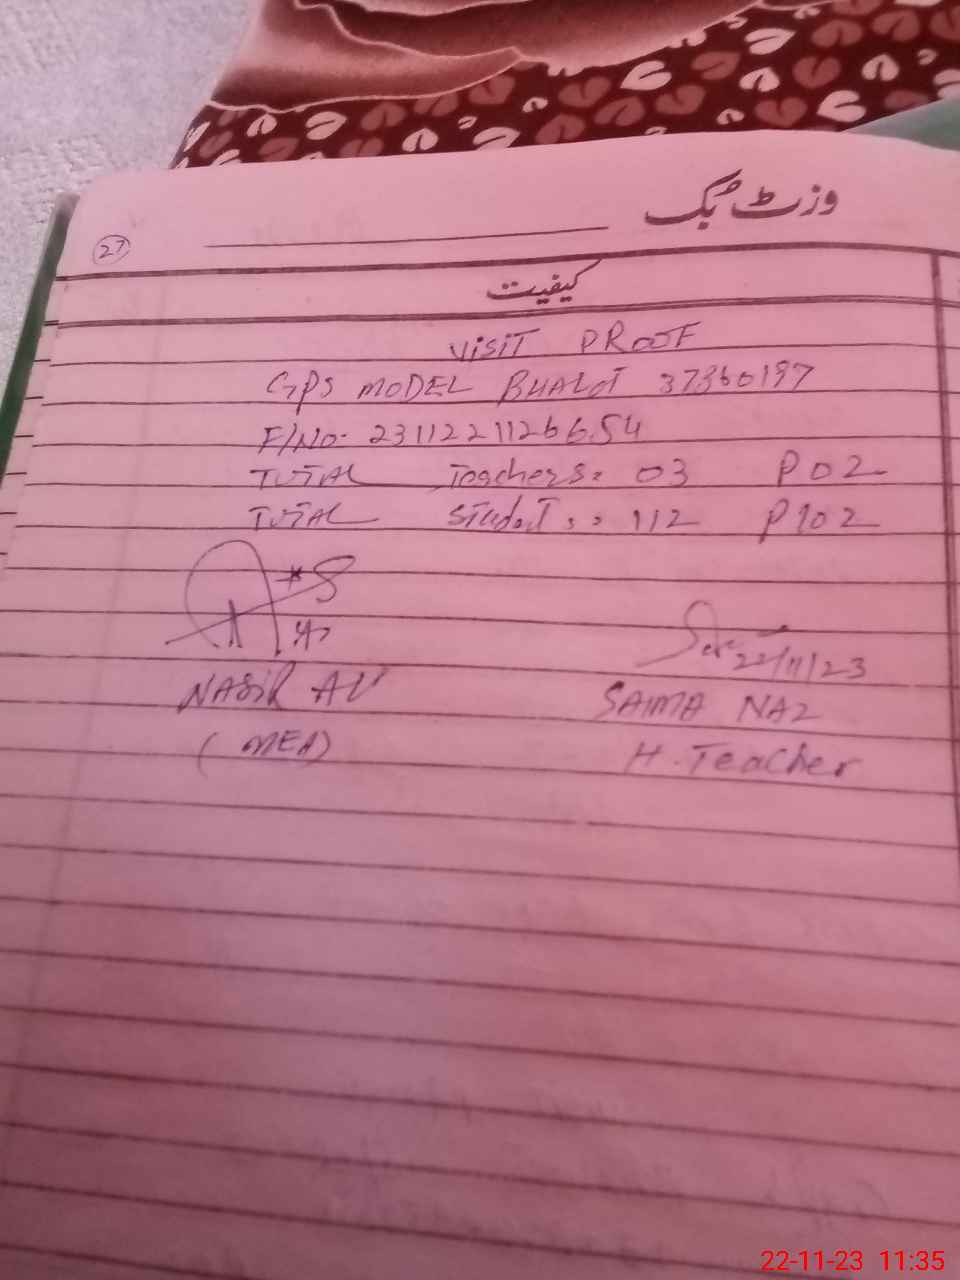 وزٹ بک
27
کیفیت
VISIT PROOF
GPS MODEL BHALOT 37360197
F/NO- 23112211266.54
TOTAL Teachers: 03 P 02
TOTAL Student s: 112 P 102
22/11/23
NASIR ALI
SAIMA NAZ
(MEA)
H. Teacher
22-11-23 11:35